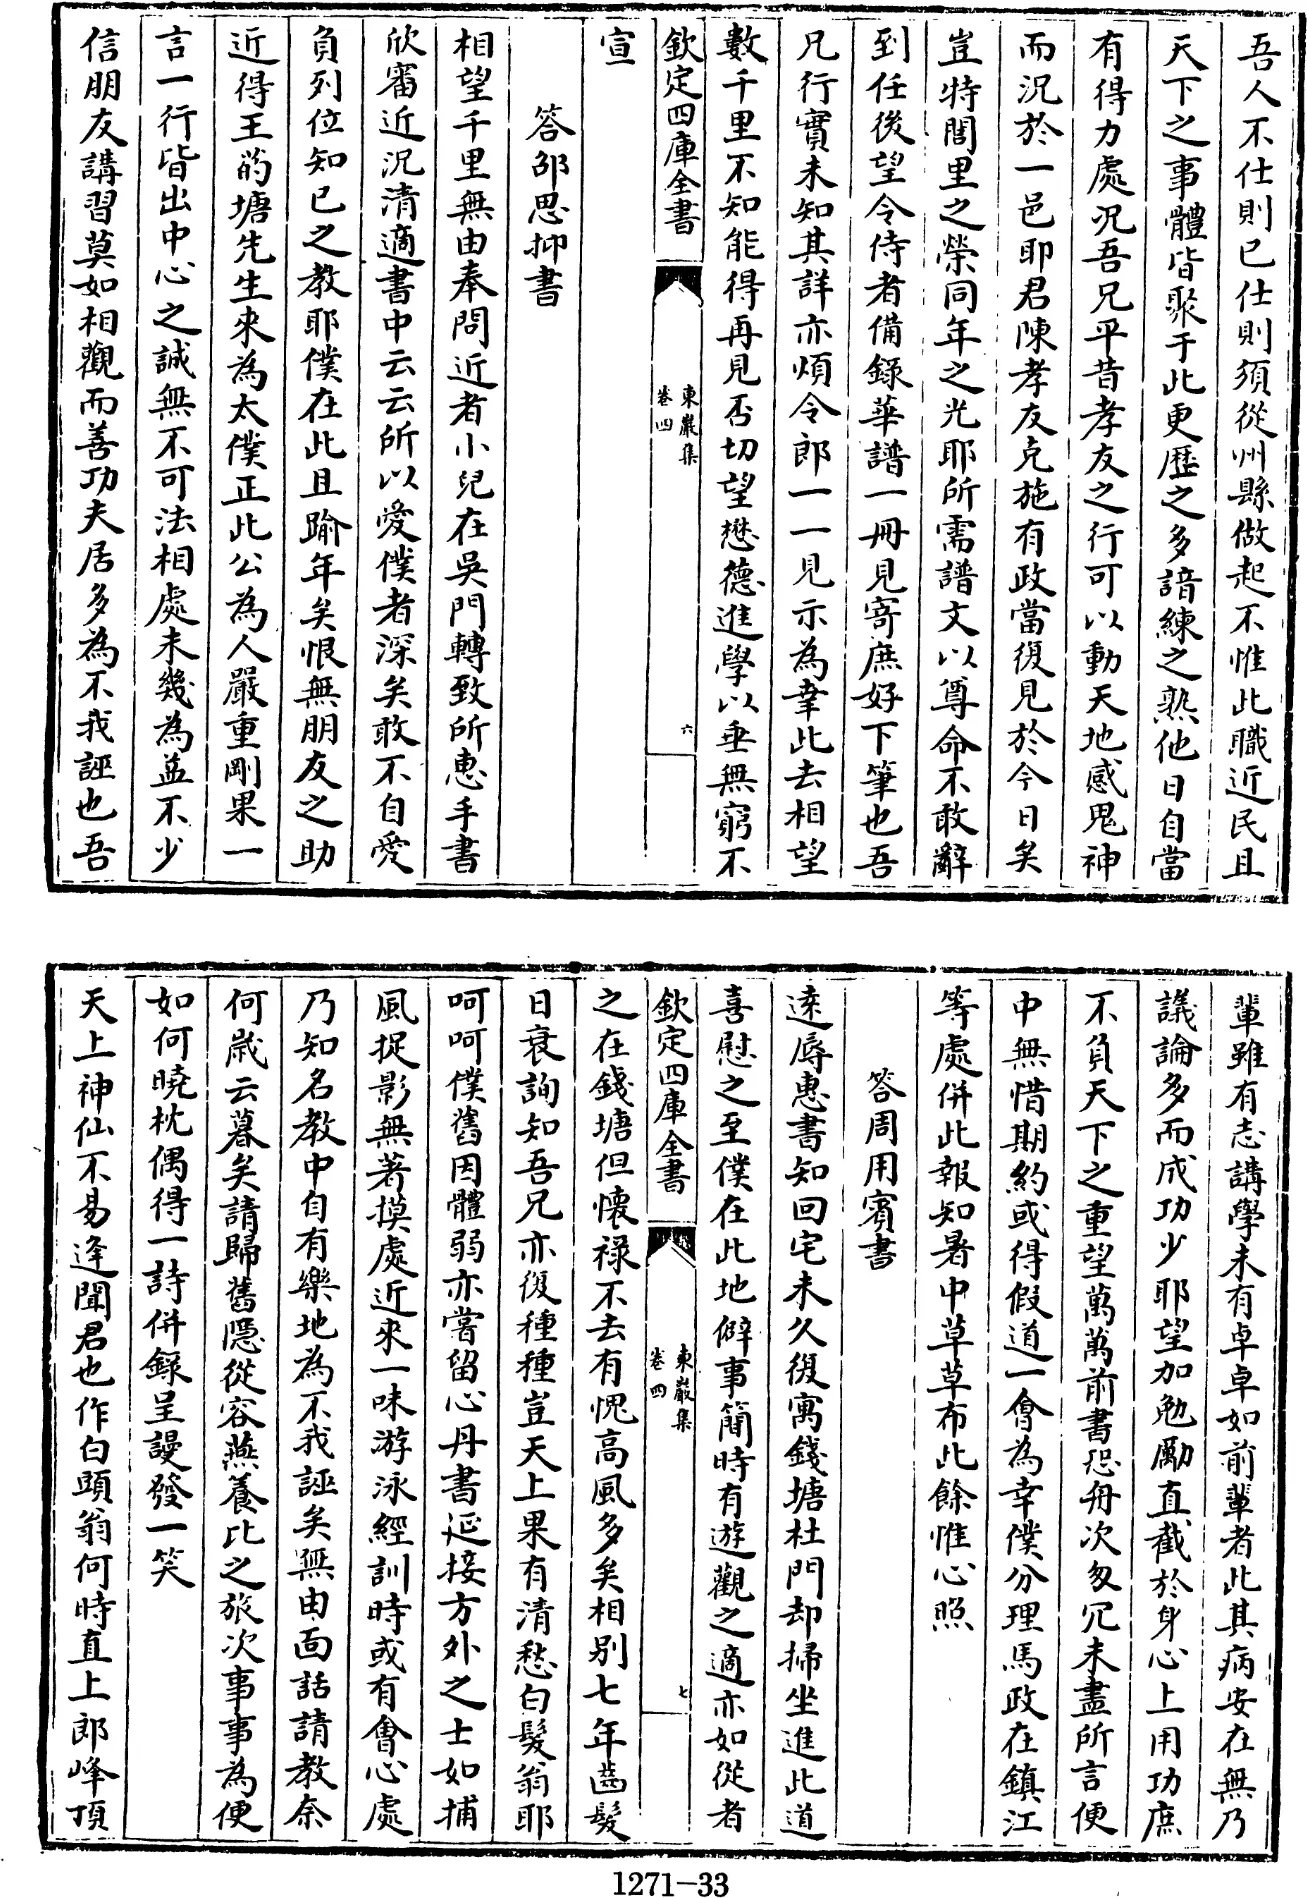 吾人不仕則已仕則須從州縣做起不惟此職近民且
天下之事體皆聚于此更歴之多諳練之熟他日自當
有得力處况吾兄平昔孝友之行可以動天地感鬼神
而况於一邑耶君陳孝友克施有政當復見於今日矣
豈特閭里之榮同年之光耶所需譜文以尊命不敢辭
到任後望令侍者備錄華譜一冊見寄庶好下筆也吾
兄行實未知其詳亦煩令郎一一見示為幸此去相望
數千里不知能得再見否切望懋德進學以垂無窮不
欽定四庫全書
東巖集
卷四
六
宣
答邵思抑書
相望千里無由奉問近者小兒在吳門轉致所惠手書
欣審近況清適書中云云所以愛僕者深矣敢不自愛
負列位知己之教耶僕在此且踰年矣恨無朋友之助
近得王葯塘先生來為太僕正此公為人嚴重剛果一
言一行皆出中心之誠無不可法相處未幾為益不少
信朋友講習莫如相觀而善功夫居多為不我誣也吾
輩雖有志講學未有卓卓如前輩者此其病安在無乃
議論多而成功少耶望加勉勵直截於身心上用功庶
不負天下之重望萬萬前書恐舟次匆冗未盡所言便
中無惜期約或得假道一會為幸僕分理馬政在鎮江
等處併此報知暑中草草布此餘惟心照
答周用賓書
逺辱惠書知回宅未久復寓錢塘杜門却掃坐進此道
喜慰之至僕在此地僻事簡時有遊觀之適亦如從者
欽定四庫全書
東巖集
卷四
七
之在錢塘但懷祿不去有愧高風多矣相别七年齒髮
日衰詢知吾兄亦復種種豈天上果有清愁白髮翁耶
呵呵僕舊因體弱亦嘗留心丹書延接方外之士如捕
風捉影無著摸處近來一味游泳經訓時或有會心處
乃知名教中自有樂地為不我誣矣無由面話請教奈
何歲云暮矣請歸舊隱從容燕養比之旅次事事為便
如何曉枕偶得一詩併錄呈謾發一笑
天上神仙不易逢聞君也作白頭翁何時直上郎峰頂
1271-33